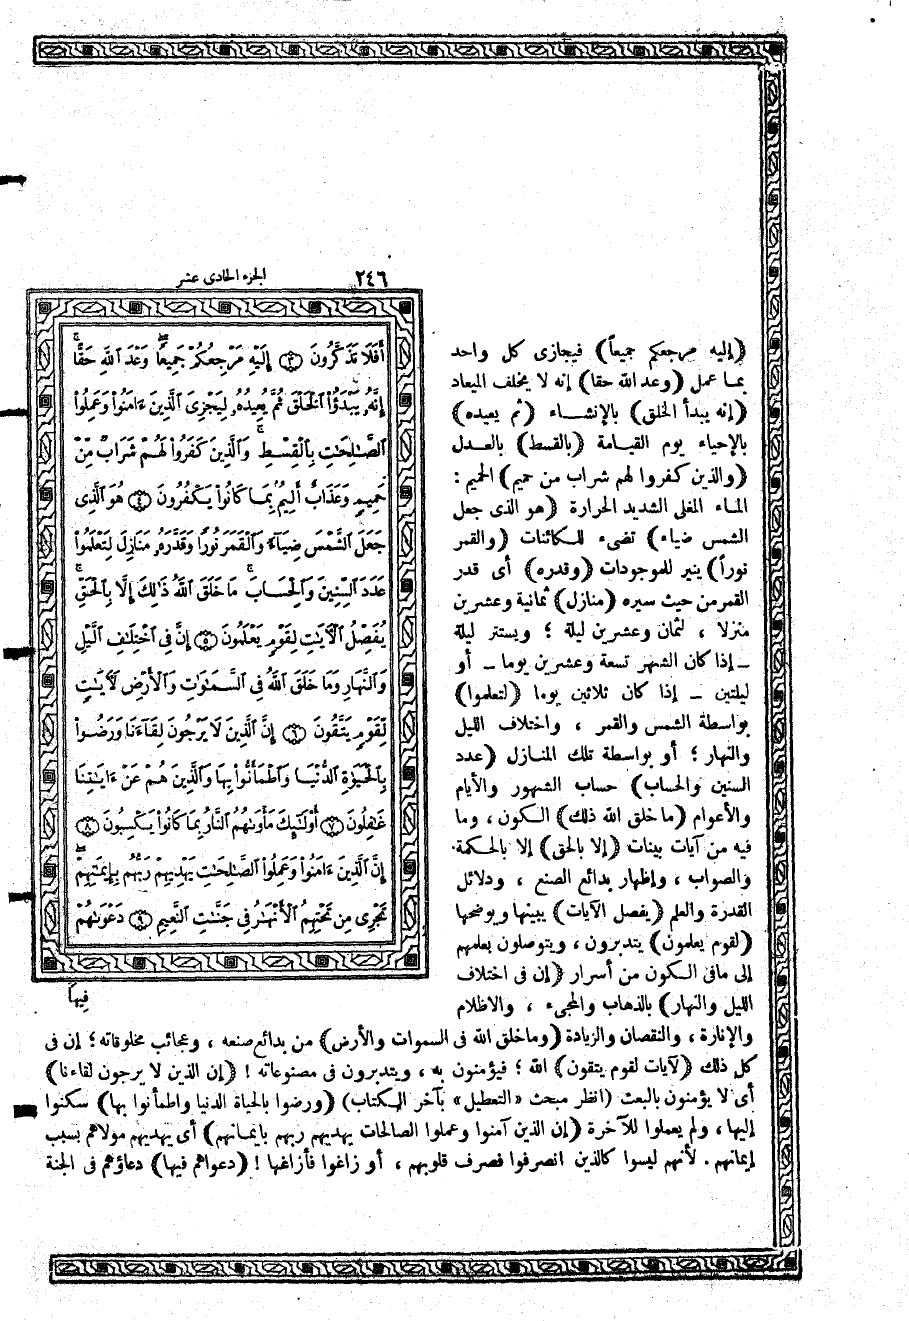 ٢٤٦ الجزء الحادى عشر
أَفَلَا تَذَكَّرُونَ ﴿٣﴾ إِلَيْهِ مَرْجِعُكُمْ جَمِيعًا وَعْدَ ٱللَّهِ حَقًّا
إِنَّهُۥ يَبْدَؤُا۟ ٱلْخَلْقَ ثُمَّ يُعِيدُهُۥ لِيَجْزِىَ ٱلَّذِينَ ءَامَنُوا۟ وَعَمِلُوا۟
ٱلصَّـٰلِحَـٰتِ بِٱلْقِسْطِ وَٱلَّذِينَ كَفَرُوا۟ لَهُمْ شَرَابٌ مِّنْ
حَمِيمٍ وَعَذَابٌ أَلِيمٌۢ بِمَا كَانُوا۟ يَكْفُرُونَ ﴿٤﴾ هُوَ ٱلَّذِى
جَعَلَ ٱلشَّمْسَ ضِيَآءً وَٱلْقَمَرَ نُورًا وَقَدَّرَهُۥ مَنَازِلَ لِتَعْلَمُوا۟
عَدَدَ ٱلسِّنِينَ وَٱلْحِسَابَ مَا خَلَقَ ٱللَّهُ ذَٰلِكَ إِلَّا بِٱلْحَقِّ
يُفَصِّلُ ٱلْأَيَـٰتِ لِقَوْمٍ يَعْلَمُونَ ﴿٥﴾ إِنَّ فِى ٱخْتِلَـٰفِ ٱلَّيْلِ
وَٱلنَّهَارِ وَمَا خَلَقَ ٱللَّهُ فِى ٱلسَّمَـٰوَٰتِ وَٱلْأَرْضِ لَأَيَـٰتٍ
لِّقَوْمٍ يَتَّقُونَ ﴿٦﴾ إِنَّ ٱلَّذِينَ لَا يَرْجُونَ لِقَآءَنَا وَرَضُوا۟
بِٱلْحَيَوٰةِ ٱلدُّنْيَا وَٱطْمَأَنُّوا۟ بِهَا وَٱلَّذِينَ هُمْ عَنْ ءَايَـٰتِنَا
غَـٰفِلُونَ ﴿٧﴾ أُو۟لَـٰٓئِكَ مَأْوَىٰهُمُ ٱلنَّارُ بِمَا كَانُوا۟ يَكْسِبُونَ ﴿٨﴾
إِنَّ ٱلَّذِينَ ءَامَنُوا۟ وَعَمِلُوا۟ ٱلصَّـٰلِحَـٰتِ يَهْدِيهِمْ رَبُّهُم بِإِيمَـٰنِهِمْ
تَجْرِى مِن تَحْتِهِمُ ٱلْأَنْهَـٰرُ فِى جَنَّـٰتِ ٱلنَّعِيمِ ﴿٩﴾ دَعْوَىٰهُمْ
فِيهَا
(إليه مرجعكم جميعاً) فيجازى كل واحد
بما عمل (وعد الله حقا) إنه لا يخلف الميعاد
(إنه يبدأ الخلق) بالإنشاء (ثم يعيده)
بالإحياء يوم القيامة (بالقسط) بالعدل
(والذين كفروا لهم شراب من حميم) الحميم :
الماء المغلى الشديد الحرارة (هو الذى جعل
الشمس ضياء) تضىء للكائنات (والقمر
نوراً) ينير للموجودات (وقدره) أى قدر
القمر من حيث سيره (منازل) ثمانية وعشرين
منزلا ، لثمان وعشرين ليلة ؛ ويستتر ليلة
ــ إذا كان الشهر تسعة وعشرين يوما ــ أو
ليلتين ــ إذا كان ثلاثين يوما (لتعلموا)
بواسطة الشمس والقمر ، واختلاف الليل
والنهار ؛ أو بواسطة تلك المنازل (عدد
السنين والحساب) حساب الشهور والأيام
والأعوام (ما خلق الله ذلك) الكون ، وما
فيه من آيات بينات (إلا بالحق) إلا بالحكمة
والصواب ، وإظهار بدائع الصنع ، ودلائل
القدرة والعلم (يفصل الآيات) يبينها ويوضحها
(لقوم يعلمون) يتدبرون ، ويتوصلون بعلمهم
إلى مافى الكون من أسرار (إن فى اختلاف
الليل والنهار) بالذهاب والمجىء ، والاظلام
والإنارة ، والنقصان والزيادة (وماخلق الله فى السموات والأرض) من بدائع صنعه ، وعجائب مخلوقاته ؛ إن فى
كل ذلك (لآيات لقوم يتقون) الله ؛ فيؤمنون به ، ويتدبرون فى مصنوعاته ! (إن الذين لا يرجون لقاءنا)
أى لا يؤمنون بالبعث (انظر مبحث «التعطيل» بآخر الكتاب) (ورضوا بالحياة الدنيا واطمأنوا بها) سكنوا
إليها ، ولم يعملوا للآخرة (إن الذين آمنوا وعملوا الصالحات يهديهم ربهم بإيمانهم) أى يهديهم مولاهم بسبب
إيمانهم . لأنهم ليسوا كالذين انصرفوا فصرف قلوبهم ، أو زاغوا فأزاغها ! (دعواهم فيها) دعاؤهم فى الجنة